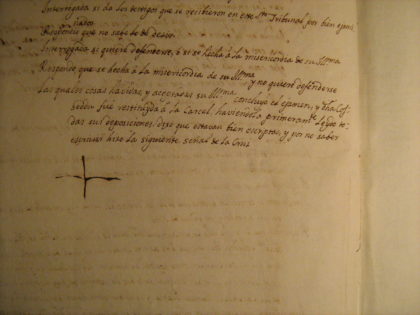 Interrogada si da los tengos que se recibieron en este Sto Tribunal por bien exami
nados
Respondió que no sabe
Interrogada si quiere defenderse, ó si se hecha á la misericordia de su Illma
Responde que se hecha á la misericordia de su Illma y no quiere defenderse
Las quales cosas havidas, y acceptadas su Illma concluyó el examen, y dha
fué restituida á la Carcel, haviendola primeramte leydo to-
das sus deposiciones, dixo que estavan bien escryptas, y por no saber
escrivir hizo la siguiente señal de la Cruz